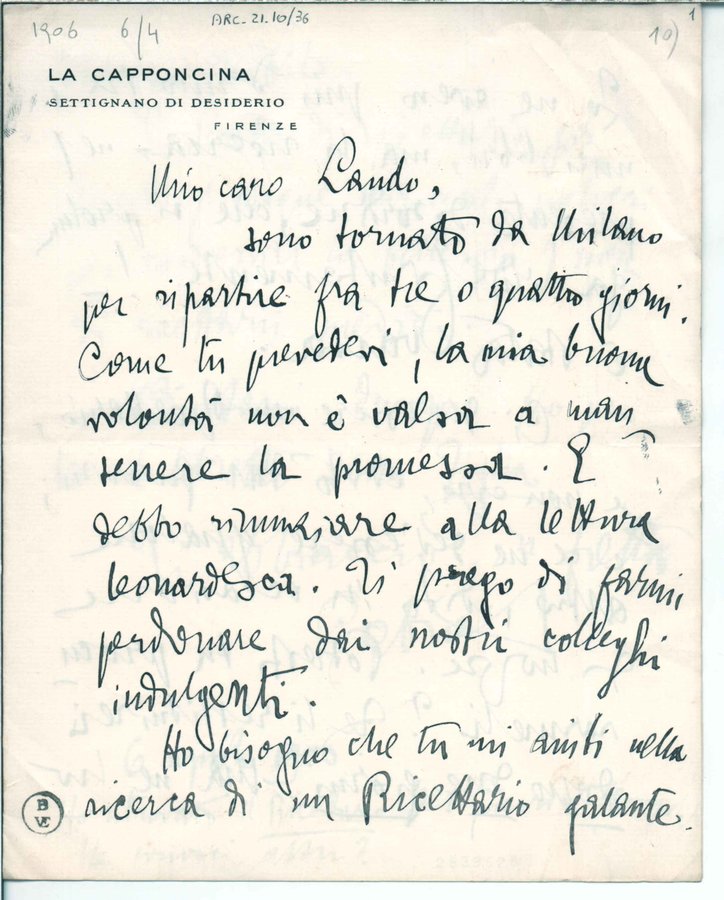 1906 6/4 ARC. 21. 10/36 10) 1
LA CAPPONCINA
SETTIGNANO DI DESIDERIO
FIRENZE
Mio caro Lando,
sono tornato da Milano
per ripartire fra tre o quattro giorni.
Come tu prevedevi, la mia buona
volontà non è valsa a man
tenere la promessa. E
debbo rinunziare alla lettura
leonardesca. Ti prego di farmi
perdonare dai nostri colleghi
indulgenti.
Ho bisogno che tu mi aiuti nella
ricerca di un Ricettario galante.
B
VE